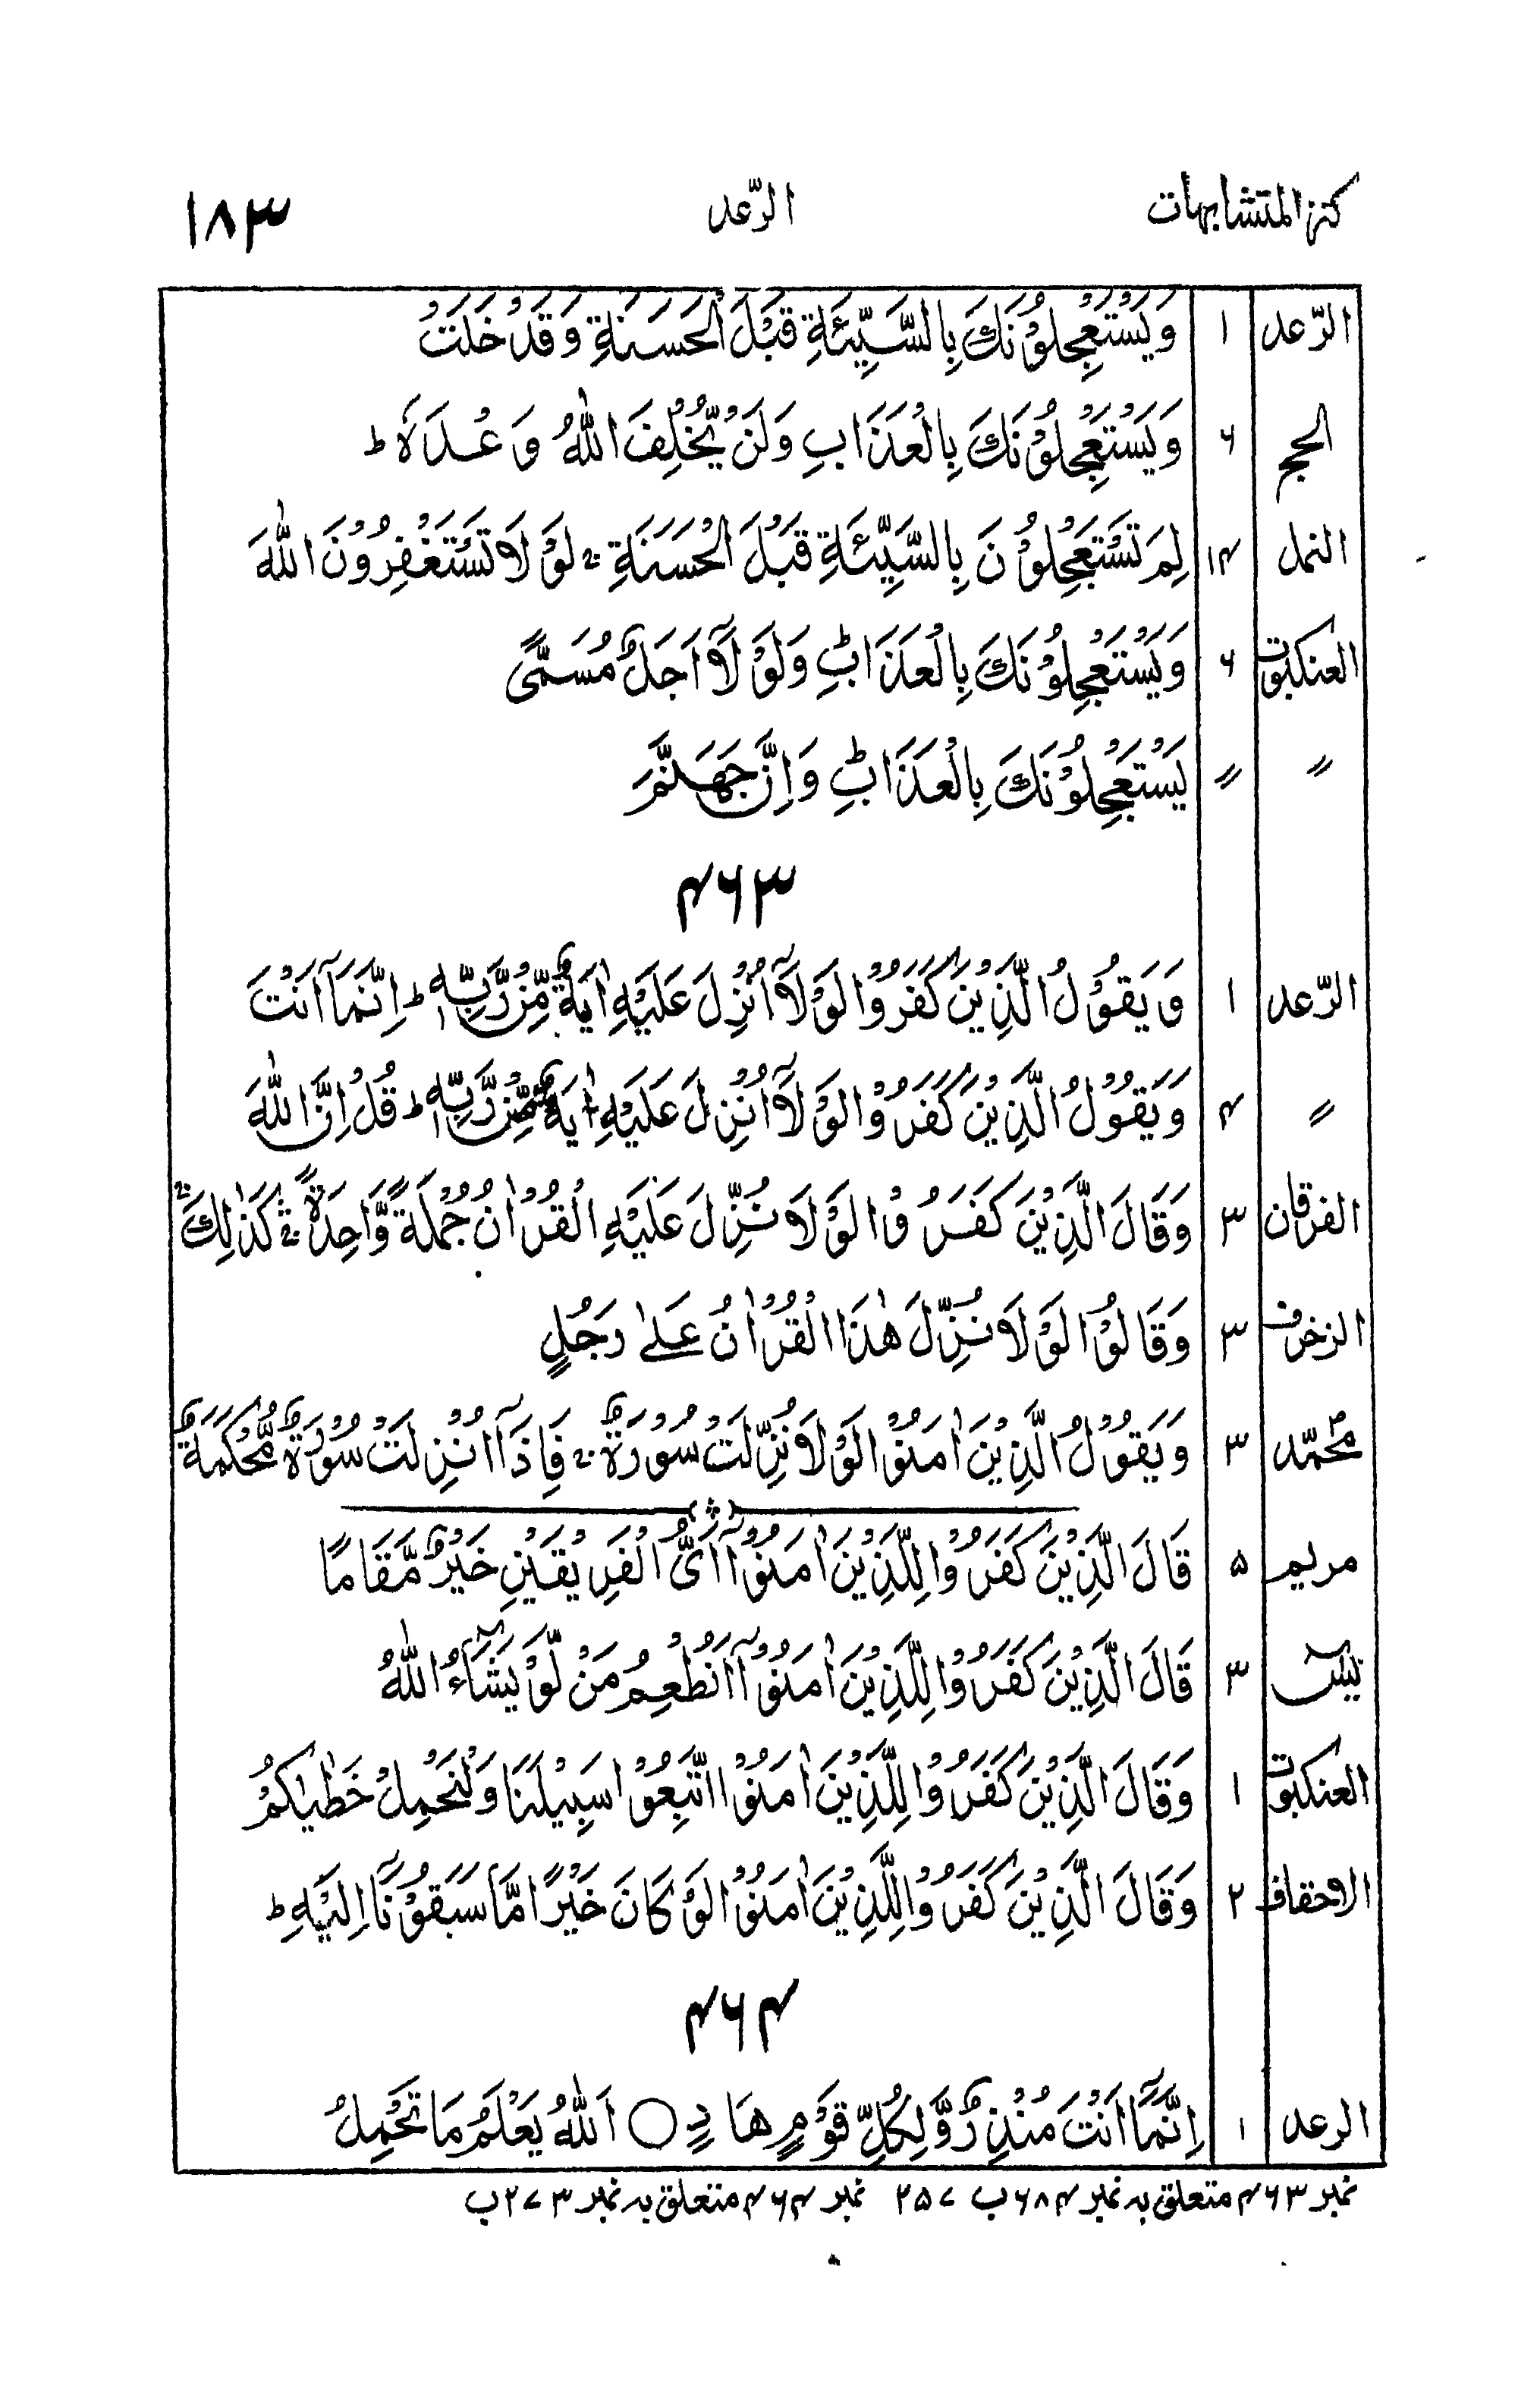 كنز المتشابهات الرّعد ۱۸۳
الرّعد ۱ وَيَسْتَعْجِلُوْنَكَ بِالسَّيِّئَةِ قَبْلَ الْحَسَنَةِ وَقَدْ خَلَتْ
الحج ۶ وَيَسْتَعْجِلُوْنَكَ بِالْعَذَابِ وَلَنْ يُّخْلِفَ اللّٰهُ وَعْدَهٗ ط
النمل ۱۴ لِمَ تَسْتَعْجِلُوْنَ بِالسَّيِّئَةِ قَبْلَ الْحَسَنَةِ ۚ لَوْلَا تَسْتَغْفِرُوْنَ اللّٰهَ
العنكبوت ۶ وَيَسْتَعْجِلُوْنَكَ بِالْعَذَابِ ؕ وَلَوْلَآ اَجَلٌ مُّسَمًّى
〃 〃 يَسْتَعْجِلُوْنَكَ بِالْعَذَابِ ؕ وَاِنَّ جَهَنَّمَ
۴۶۳
الرّعد ۱ وَيَقُوْلُ الَّذِيْنَ كَفَرُوْا لَوْلَآ اُنْزِلَ عَلَيْهِ اٰيَةٌ مِّنْ رَّبِّهٖ ط اِنَّمَآ اَنْتَ
〃 ۴ وَيَقُوْلُ الَّذِيْنَ كَفَرُوْا لَوْلَآ اُنْزِلَ عَلَيْهِ اٰيَةٌ مِّنْ رَّبِّهٖ ط قُلْ اِنَّ اللّٰهَ
الفرقان ۳ وَقَالَ الَّذِيْنَ كَفَرُوْا لَوْلَا نُزِّلَ عَلَيْهِ الْقُرْاٰنُ جُمْلَةً وَّاحِدَةً ۛۚ كَذٰلِكَ ۛۚ
الزخرف ۳ وَقَالُوْا لَوْلَا نُزِّلَ هٰذَا الْقُرْاٰنُ عَلٰى رَجُلٍ
محمّد ۳ وَيَقُوْلُ الَّذِيْنَ اٰمَنُوْا لَوْلَا نُزِّلَتْ سُوْرَةٌ ۚ فَاِذَآ اُنْزِلَتْ سُوْرَةٌ مُّحْكَمَةٌ
مريم ۵ قَالَ الَّذِيْنَ كَفَرُوْا لِلَّذِيْنَ اٰمَنُوْٓا اَيُّ الْفَرِيْقَيْنِ خَيْرٌ مَّقَامًا
يٰسٓ ۳ قَالَ الَّذِيْنَ كَفَرُوْا لِلَّذِيْنَ اٰمَنُوْٓا اَنُطْعِمُ مَنْ لَّوْ يَشَآءُ اللّٰهُ
العنكبوت ۱ وَقَالَ الَّذِيْنَ كَفَرُوْا لِلَّذِيْنَ اٰمَنُوا اتَّبِعُوْا سَبِيْلَنَا وَلْنَحْمِلْ خَطٰيٰكُمْ
الاحقاف ۲ وَقَالَ الَّذِيْنَ كَفَرُوْا لِلَّذِيْنَ اٰمَنُوْا لَوْ كَانَ خَيْرًا مَّا سَبَقُوْنَآ اِلَيْهِ ط
۴۶۴
الرعد ۱ اِنَّمَآ اَنْتَ مُنْذِرٌ وَّلِكُلِّ قَوْمٍ هَادٍ ○ اَللّٰهُ يَعْلَمُ مَا تَحْمِلُ
نمبر ۴۶۳ متعلق بہ نمبر ۶۸۴ ب ۲۵۷ نمبر ۴۶۴ متعلق بہ نمبر ۲۷۳ ب